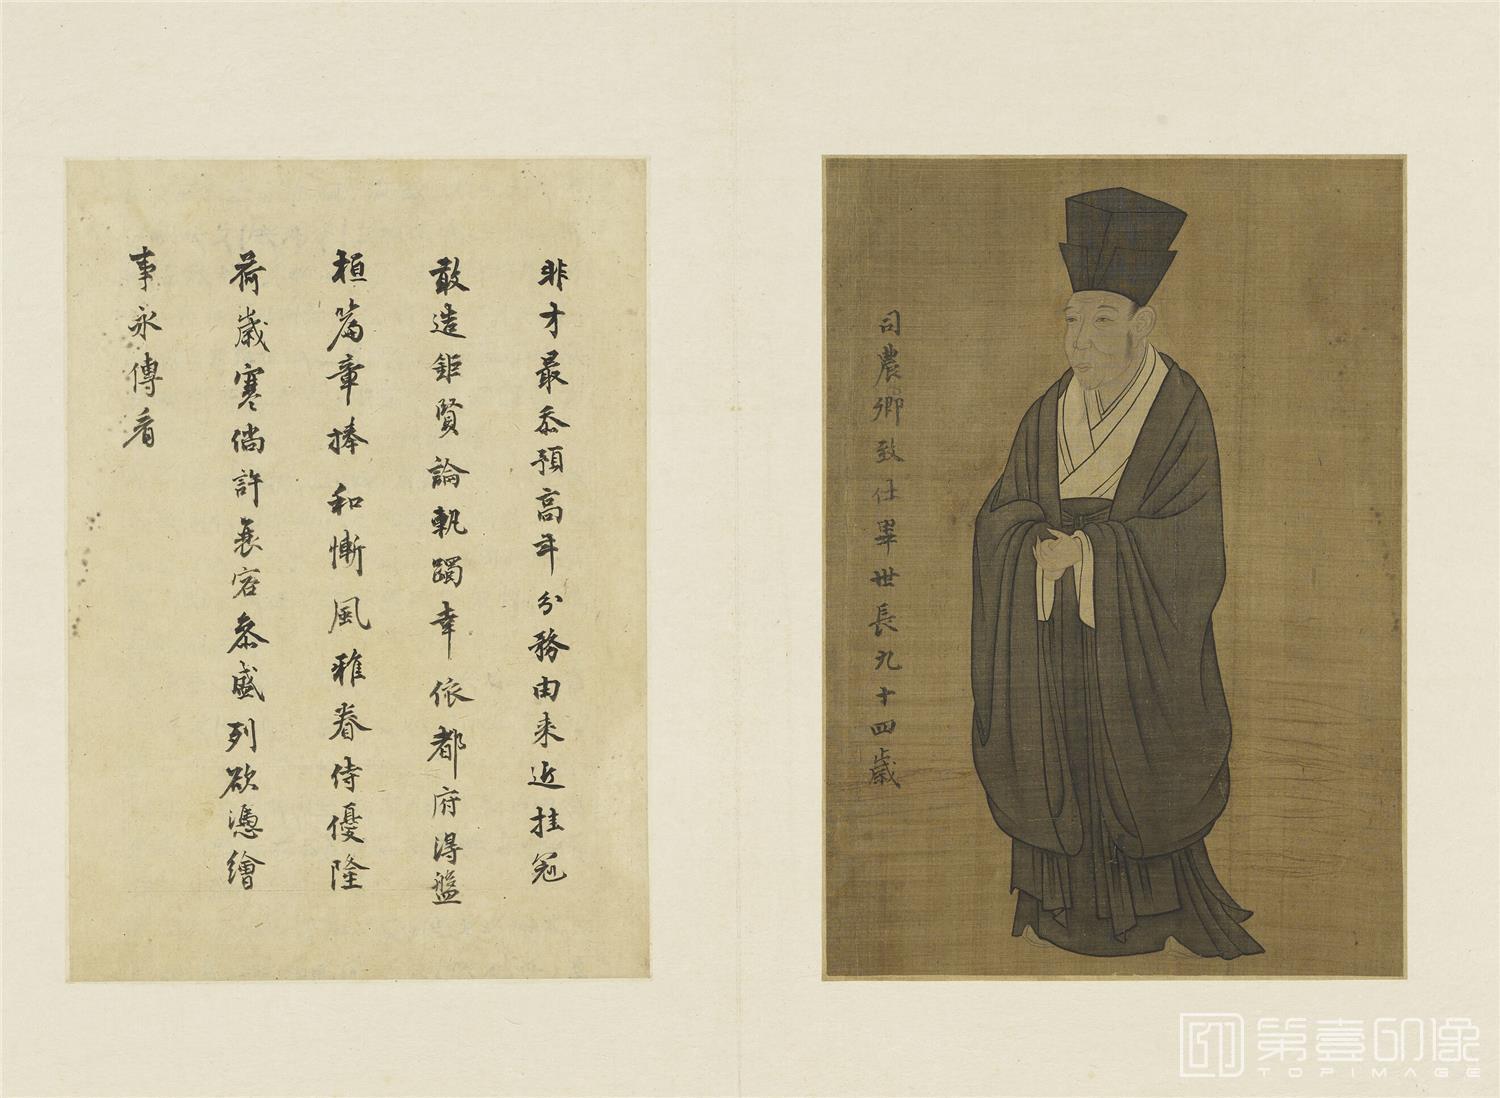 司農卿致仕畢世長九十四歲
非才最忝預高年分務由来近挂冠
敢造鉅賢論軌躅幸依都府淂盤
桓篇章捧和慚風雅眷待優隆
荷歲寒倘許衰容叅盛列欲憑繪
事永傳看
第壹印像
TOPIMAGE